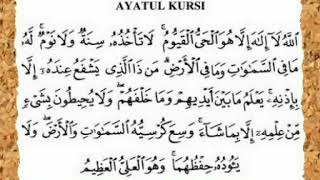 AYATUL KURSI
اللَّهُ لَا إِلَٰهَ إِلَّا هُوَ الْحَيُّ الْقَيُّومُ ۚ لَا تَأْخُذُهُ سِنَةٌ وَلَا نَوْمٌ ۚ لَهُ
مَا فِي السَّمَاوَاتِ وَمَا فِي الْأَرْضِ ۗ مَن ذَا الَّذِي يَشْفَعُ عِندَهُ إِلَّا
بِإِذْنِهِ ۚ يَعْلَمُ مَا بَيْنَ أَيْدِيهِمْ وَمَا خَلْفَهُمْ ۖ وَلَا يُحِيطُونَ بِشَيْءٍ
مِّنْ عِلْمِهِ إِلَّا بِمَا شَاءَ ۚ وَسِعَ كُرْسِيُّهُ السَّمَاوَاتِ وَالْأَرْضَ ۖ وَلَا
يَئُودُهُ حِفْظُهُمَا ۚ وَهُوَ الْعَلِيُّ الْعَظِيمُ